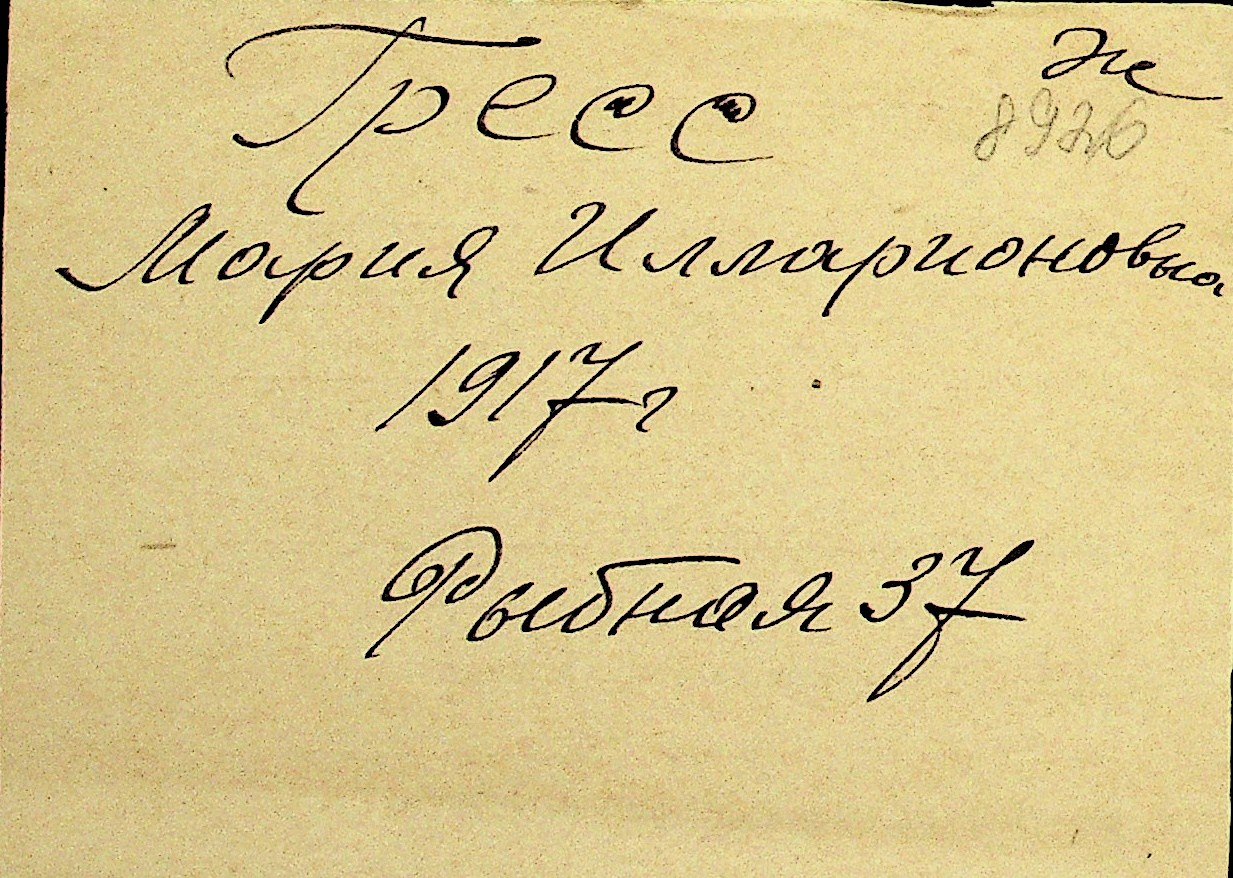 Гресс
Же
8926
Мария Илларионовна
1917 г
Рыбная 37